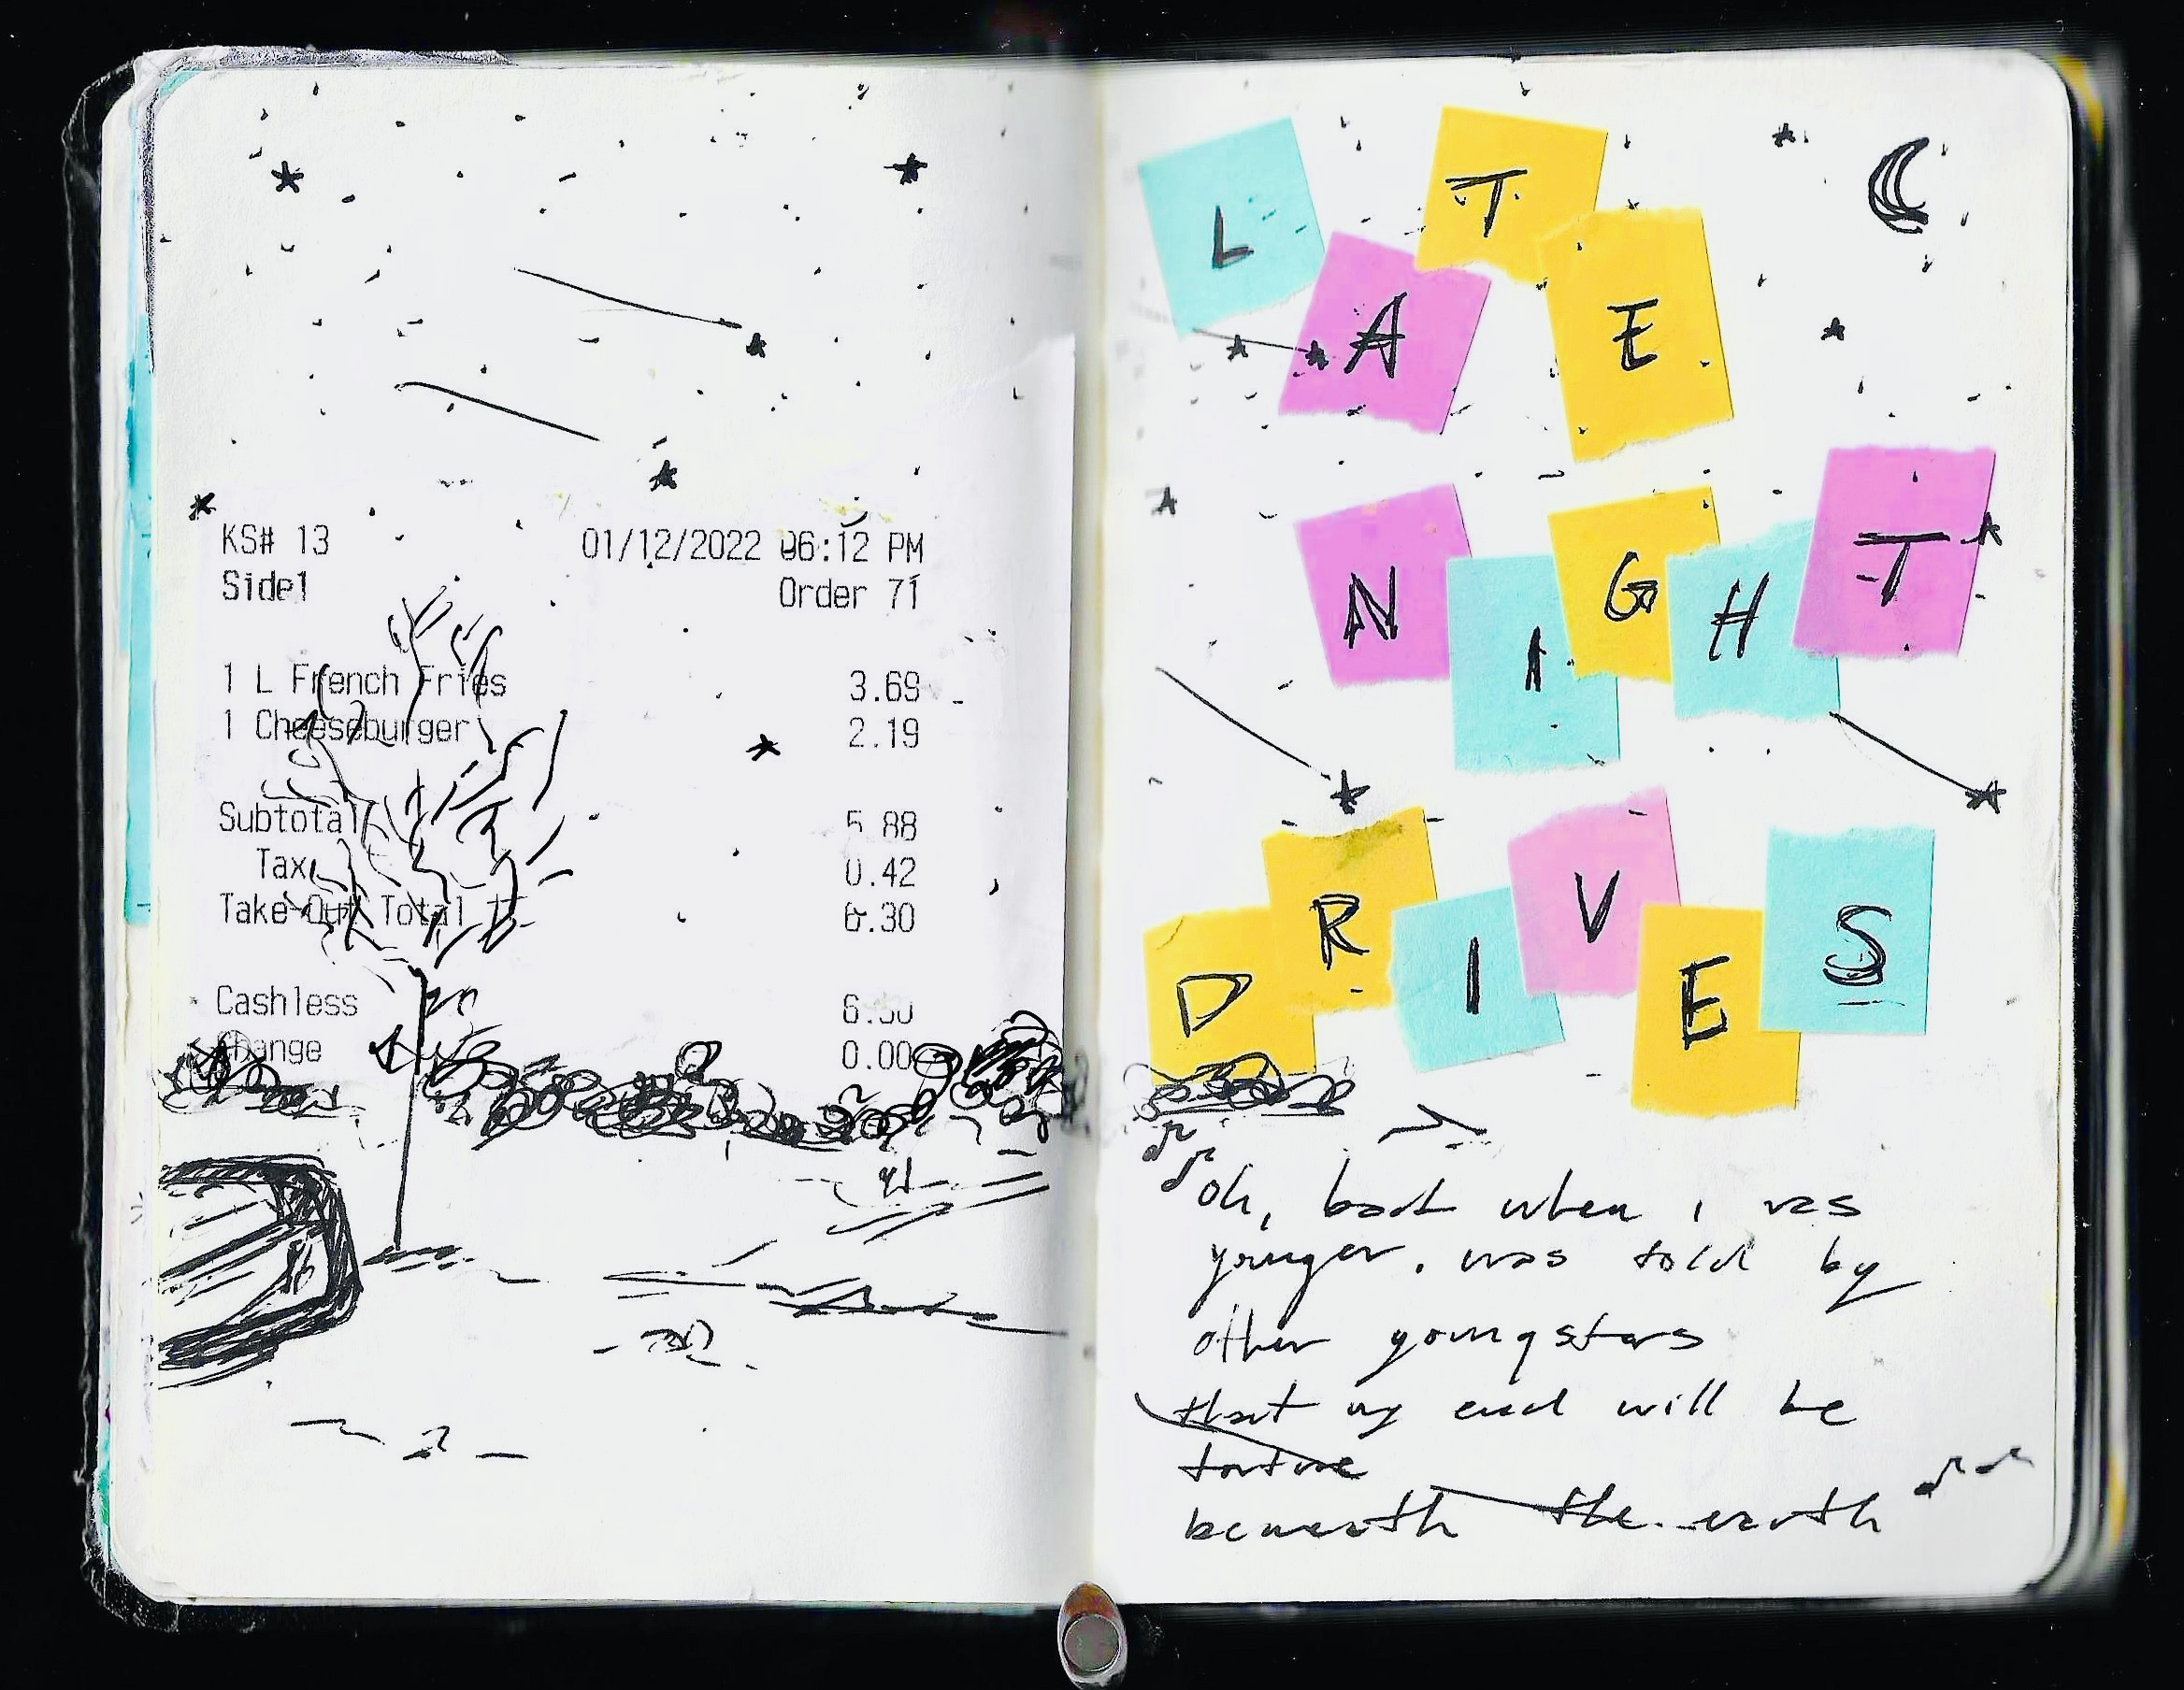 KS# 13 01/12/2022 06:12 PM
Side1 Order 71
1 L French Fries 3.69
1 Cheeseburger 2.19
Subtotal 5.88
Tax 0.42
Take-Out Total 6.30
Cashless 6.30
Change 0.00
LATE
NIGHT
DRIVES
oh, back when i was
younger. was told by
other youngsters
that my end will be
torture
beneath the earth